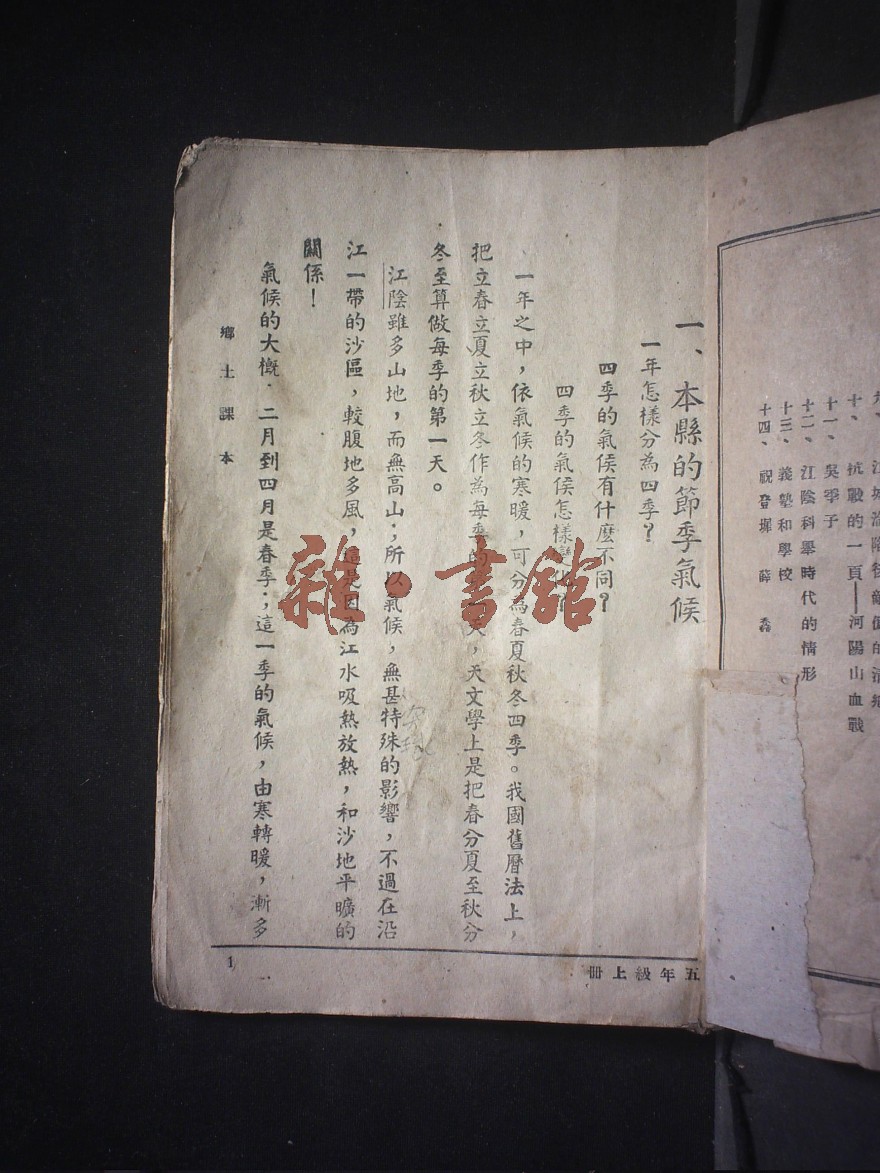 十、抗戰的一頁——河陽山血戰
十一、吳季子
十二、江陰科舉時代的情形
十三、義塾和學校
十四、祝登墀 薛
一、本縣的節季氣候
一年怎樣分為四季？
四季的氣候有什麼不同？
四季的氣候怎樣變化？
一年之中，依氣候的寒暖，可分為春夏秋冬四季。我國舊曆法上，
把立春立夏立秋立冬作為每季的天，天文學上是把春分夏至秋分
冬至算做每季的第一天。
江陰雖多山地，而無高山；所以氣候，無甚特殊的影響，不過在沿
江一帶的沙區，較腹地多風，這是因為江水吸熱放熱，和沙地平曠的
關係！
氣候的大概．二月到四月是春季；這一季的氣候，由寒轉暖，漸多
鄉土課本
1
五年級上冊
雜·書館